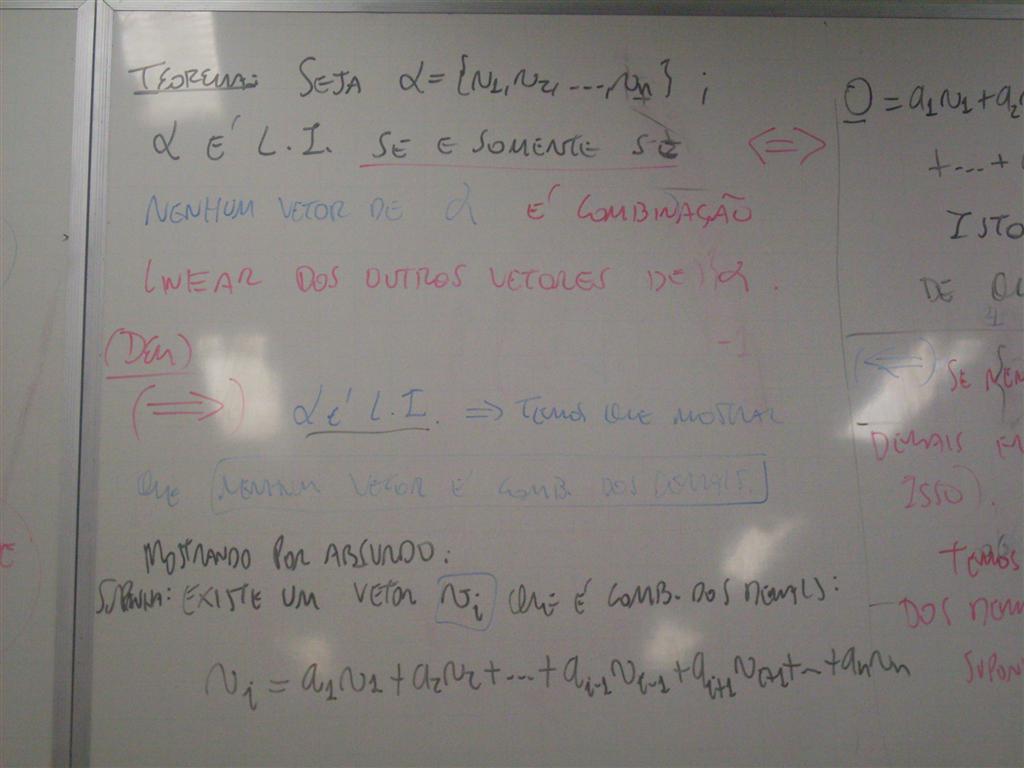 TEOREMA: SEJA α = {v1, v2, ..., vn} ;
α É L.I. SE E SOMENTE SE <=>
NENHUM VETOR DE α É COMBINAÇÃO
LINEAR DOS OUTROS VETORES DE α.
(DEM)
(⇒) α é L.I. ⇒ TEMOS QUE MOSTRAR
QUE NENHUM VETOR É COMB. DOS DEMAIS.
MOSTRANDO POR ABSURDO:
SUPONHA: EXISTE UM VETOR vi QUE É COMB. DOS DEMAIS:
vi = a1v1 + a2v2 + ... + ai-1vi-1 + ai+1vi+1 + ... + anvn
0 = a1v1 + a2
+ ... +
ISTO
DE
(⇐) SE
DEMAIS
ISSO).
TEMOS
DOS DEMA
SUPON